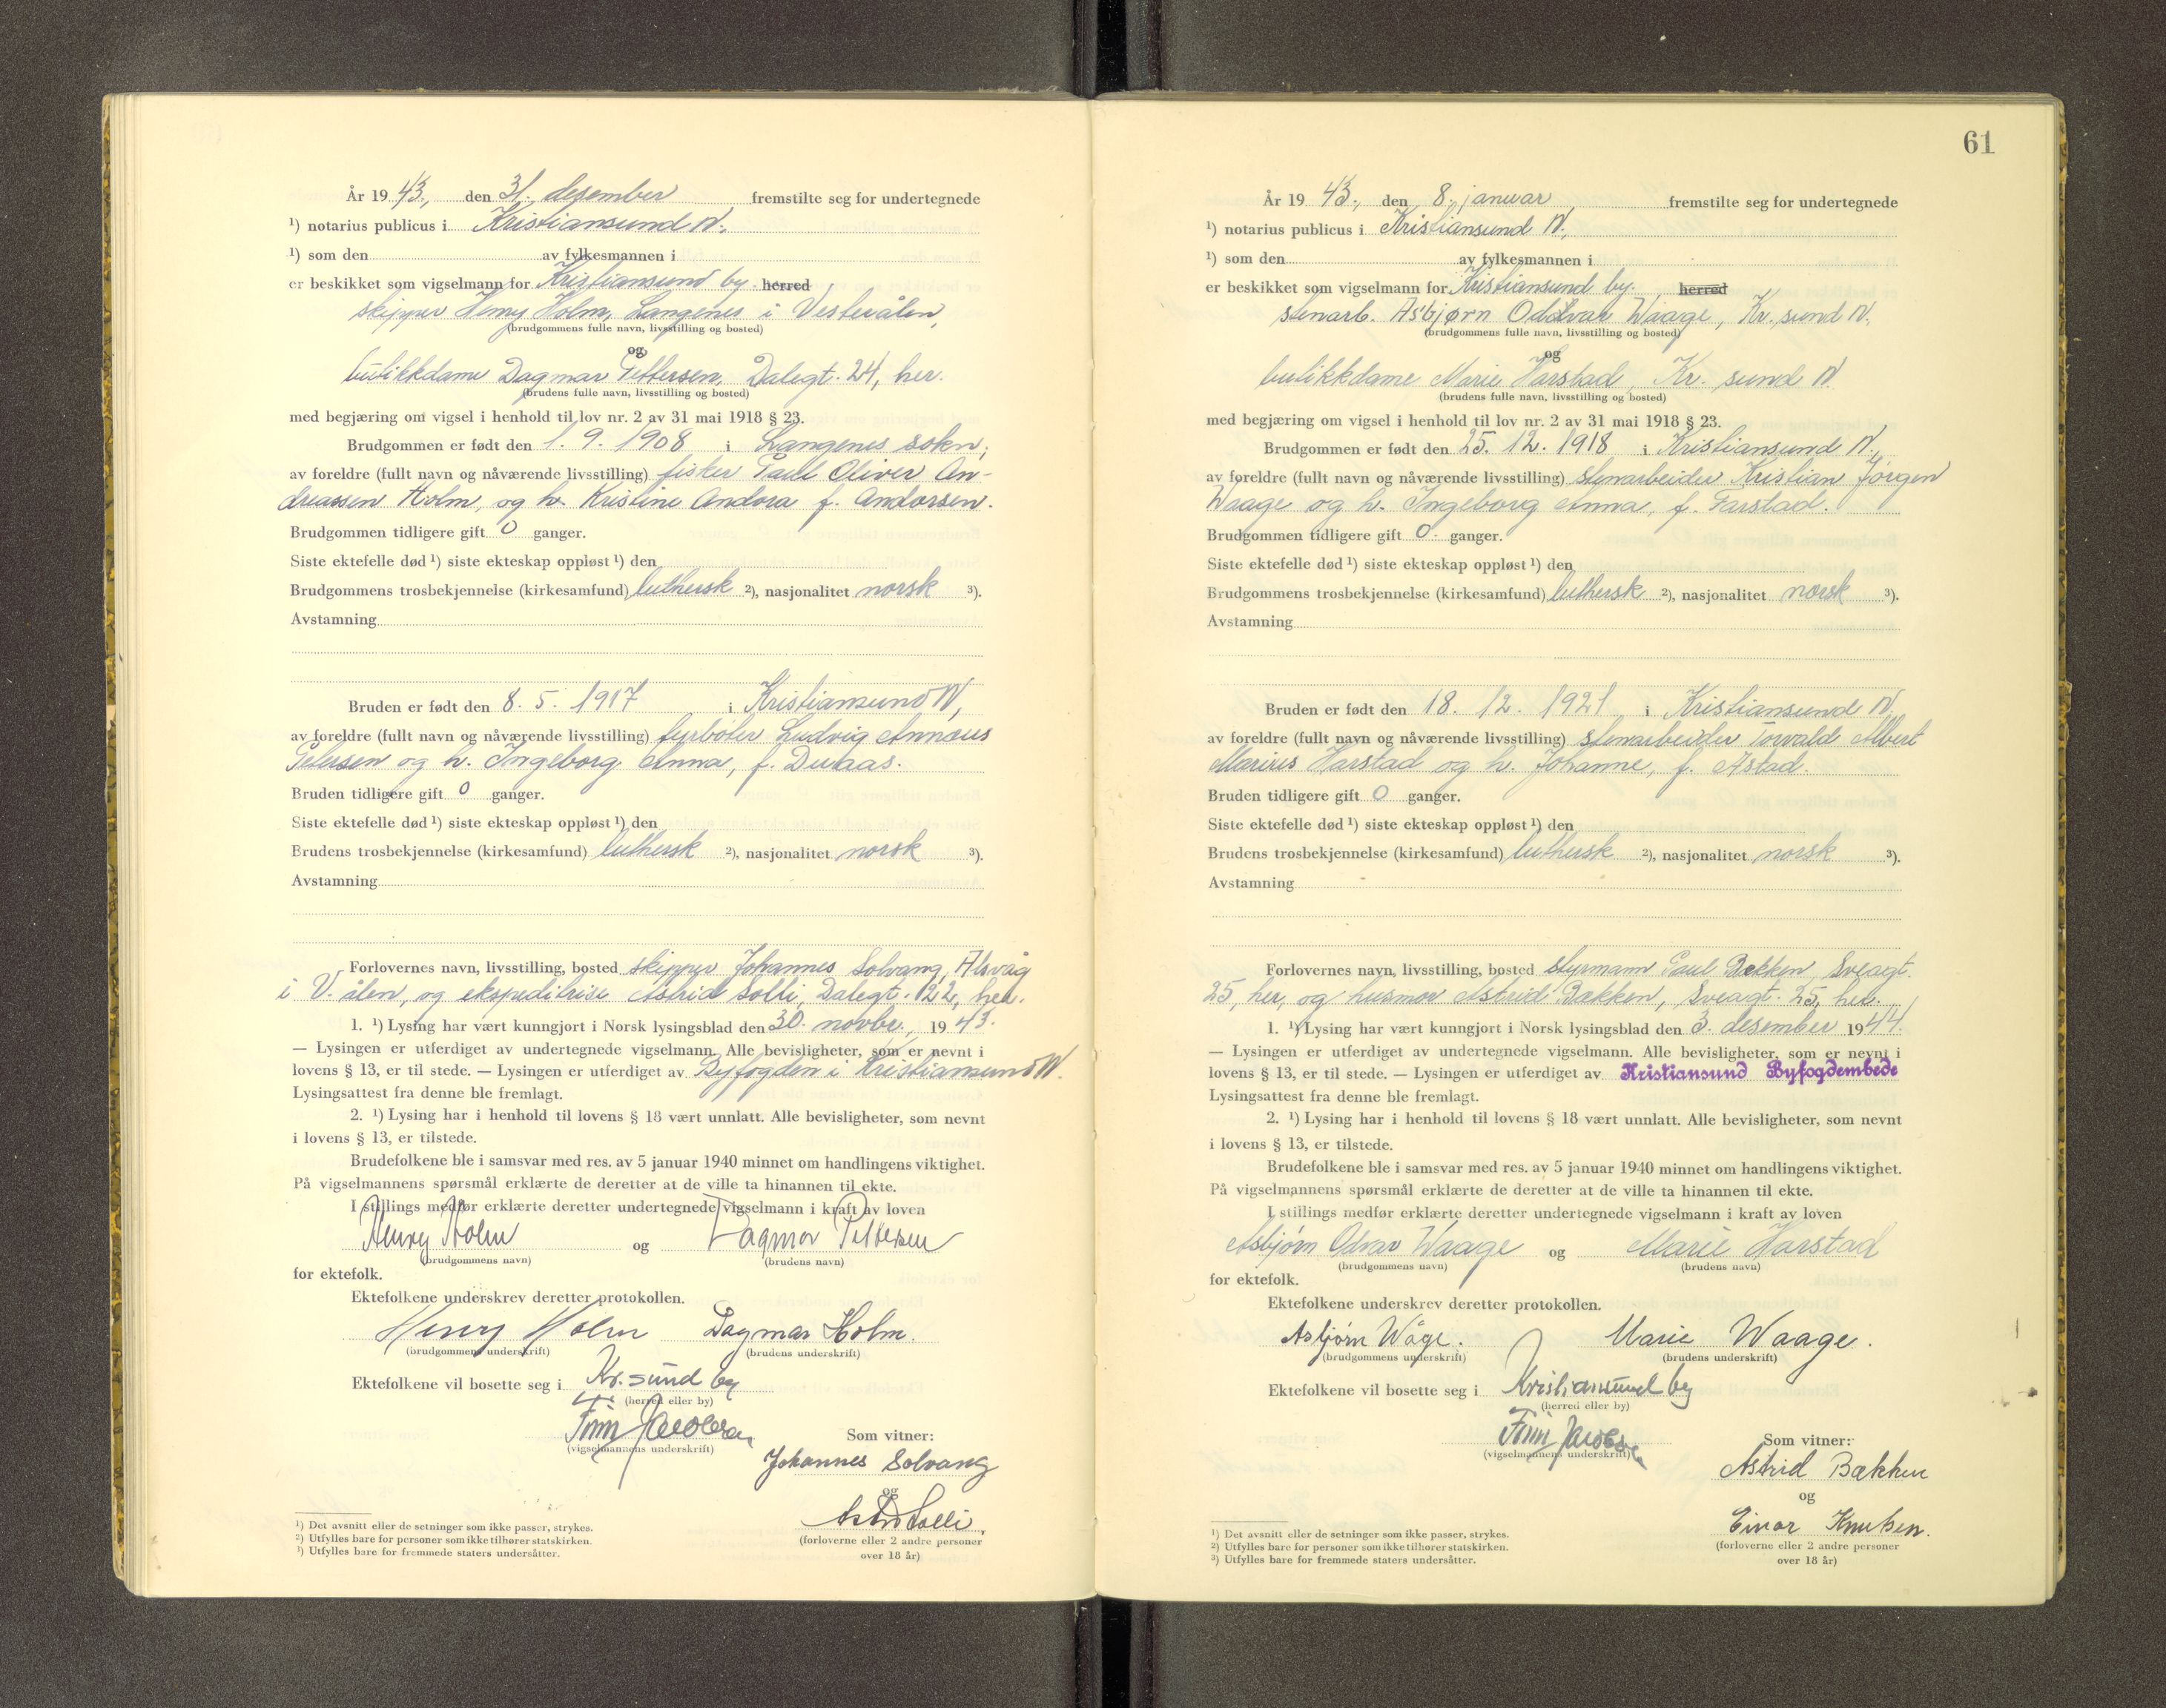 År 19 43, den 31. desember fremstilte seg for undertegnede
¹) notarius publicus i Kristiansund N.,
¹) som den av fylkesmannen i
er beskikket som vigselmann for Kristiansund by. herred
skipper Henry Holm, Langenes i Vesterålen,
(brudgommens fulle navn, livsstilling og bosted)
og
butikkdame Dagmar Pettersen, Dalegt. 24, her.
(brudens fulle navn, livsstilling og bosted)
med begjæring om vigsel i henhold til lov nr. 2 av 31 mai 1918 § 23.
Brudgommen er født den 1. 9. 1908 i Langenes sokn,
av foreldre (fullt navn og nåværende livsstilling) fisker Paul Oliver An-
dreassen Holm, og h. Kristine Andora f. Andorsen.
Brudgommen tidligere gift 0 ganger.
Siste ektefelle død ¹) siste ekteskap oppløst ¹) den
Brudgommens trosbekjennelse (kirkesamfund) luthersk ²), nasjonalitet norsk ³).
Avstamning
Bruden er født den 8. 5. 1917 i Kristiansund N,
av foreldre (fullt navn og nåværende livsstilling) fyrbøter Ludvig Annæus
Petersen og h. Ingeborg Anna, f.
Bruden tidligere gift 0 ganger.
Siste ektefelle død ¹) siste ekteskap oppløst ¹) den
Brudens trosbekjennelse (kirkesamfund) luthersk ²), nasjonalitet norsk ³).
Avstamning
Forlovernes navn, livsstilling, bosted skipper Johannes Solvang, Alsvåg
i V. ålen, og ekspeditrise Astrid Solli, Dalegt. 122, her.
1. ¹) Lysing har vært kunngjort i Norsk lysingsblad den 30. novbr., 19 43.
— Lysingen er utferdiget av undertegnede vigselmann. Alle bevisligheter, som er nevnt i
lovens § 13, er til stede. — Lysingen er utferdiget av Byfogden i Kristiansund N.
Lysingsattest fra denne ble fremlagt.
2. ¹) Lysing har i henhold til lovens § 18 vært unnlatt. Alle bevisligheter, som nevnt
i lovens § 13, er tilstede.
Brudefolkene ble i samsvar med res. av 5 januar 1940 minnet om handlingens viktighet.
På vigselmannens spørsmål erklærte de deretter at de ville ta hinannen til ekte.
I stillings medfør erklærte deretter undertegnede vigselmann i kraft av loven
Henry Holm og Dagmar Pettersen
(brudgommens navn) (brudens navn)
for ektefolk.
Ektefolkene underskrev deretter protokollen.
Henry Holm Dagmar Holm.
(brudgommens underskrift) (brudens underskrift)
Ektefolkene vil bosette seg i Kr.sund by
(herred eller by)
Finn Jacobsen
(vigselmannens underskrift)
Som vitner:
Johannes Solvang
og
Astrid Solli,
(forloverne eller 2 andre personer
over 18 år)
¹) Det avsnitt eller de setninger som ikke passer, strykes.
²) Utfylles bare for personer som ikke tilhører statskirken.
³) Utfylles bare for fremmede staters undersåtter.
61
År 19 43., den 8. januar fremstilte seg for undertegnede
¹) notarius publicus i Kristiansund N.,
¹) som den av fylkesmannen i
er beskikket som vigselmann for Kristiansund by. herred
stenarb. Asbjørn Oddvar Waage, Kr. sund N.,
(brudgommens fulle navn, livsstilling og bosted)
og
butikkdame Marie Harstad, Kr. sund N.
(brudens fulle navn, livsstilling og bosted)
med begjæring om vigsel i henhold til lov nr. 2 av 31 mai 1918 § 23.
Brudgommen er født den 25. 12. 1918 i Kristiansund N.,
av foreldre (fullt navn og nåværende livsstilling) stenarbeider Kristian Jørgen
Waage og h. Ingeborg Anna, f. Farstad.
Brudgommen tidligere gift 0. ganger.
Siste ektefelle død ¹) siste ekteskap oppløst ¹) den
Brudgommens trosbekjennelse (kirkesamfund) luthersk ²), nasjonalitet norsk ³).
Avstamning
Bruden er født den 18. 12. 1921 i Kristiansund N.
av foreldre (fullt navn og nåværende livsstilling) stenarbeider Torvald Albert
Marius Harstad og h. Johanne, f. Astad.
Bruden tidligere gift 0 ganger.
Siste ektefelle død ¹) siste ekteskap oppløst ¹) den
Brudens trosbekjennelse (kirkesamfund) luthersk ²), nasjonalitet norsk ³).
Avstamning
Forlovernes navn, livsstilling, bosted styrmann Paul Bækken, Sveagt.
25, her, og husmor Astrid Bækken, Sveagt. 25, her.
1. ¹) Lysing har vært kunngjort i Norsk lysingsblad den 3. desember 19 44.
— Lysingen er utferdiget av undertegnede vigselmann. Alle bevisligheter, som er nevnt i
lovens § 13, er til stede. — Lysingen er utferdiget av Kristiansund Byfogdembede
Lysingsattest fra denne ble fremlagt.
2. ¹) Lysing har i henhold til lovens § 18 vært unnlatt. Alle bevisligheter, som nevnt
i lovens § 13, er tilstede.
Brudefolkene ble i samsvar med res. av 5 januar 1940 minnet om handlingens viktighet.
På vigselmannens spørsmål erklærte de deretter at de ville ta hinannen til ekte.
I stillings medfør erklærte deretter undertegnede vigselmann i kraft av loven
Asbjørn Odvar Waage og Marie Harstad
(brudgommens navn) (brudens navn)
for ektefolk.
Ektefolkene underskrev deretter protokollen.
Asbjørn Wåge. Marie Waage.
(brudgommens underskrift) (brudens underskrift)
Ektefolkene vil bosette seg i Kristiansund by
(herred eller by)
Finn Jacobsen
(vigselmannens underskrift)
Som vitner:
Astrid Bækken
og
Einar Knutsen.
(forloverne eller 2 andre personer
over 18 år)
¹) Det avsnitt eller de setninger som ikke passer, strykes.
²) Utfylles bare for personer som ikke tilhører statskirken.
³) Utfylles bare for fremmede staters undersåtter.